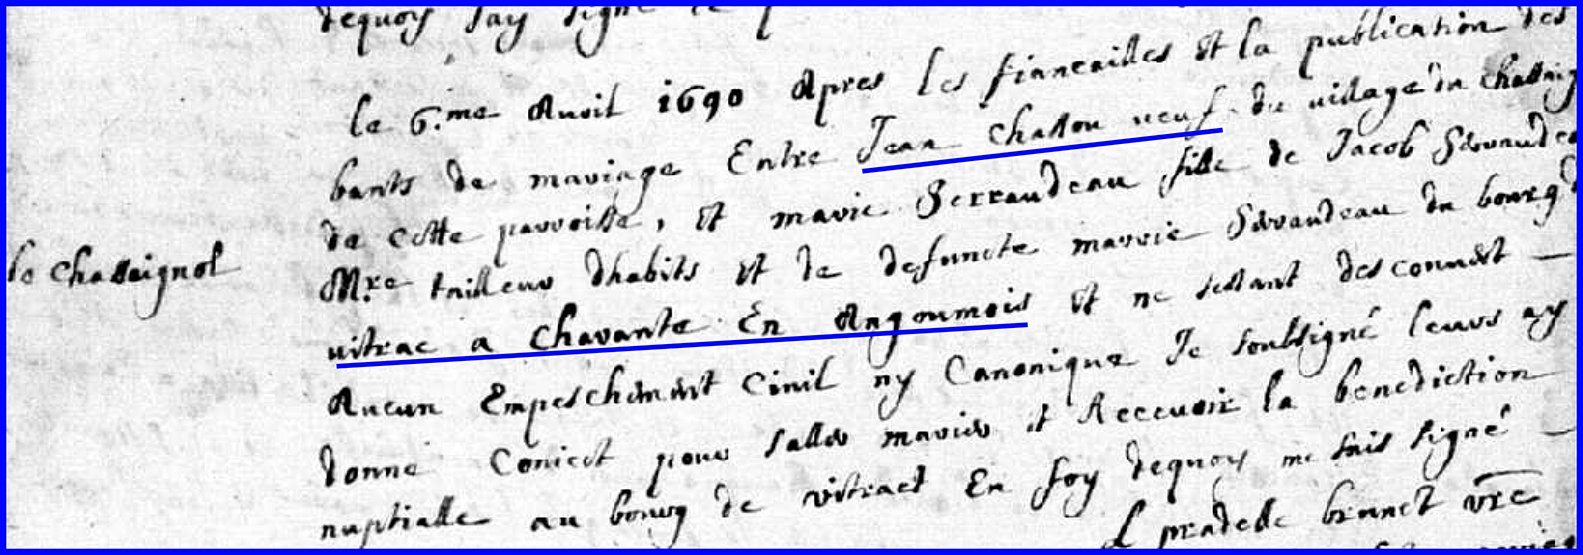 dequoy Jay signé
le 6.me Avril 1690 Apres les fiancailles Et la publication des
bants de mariage Entre Jean Chasteu neuf du village du Chassaig
de cette parroisse, Et marie Serraudeau fille de Jacob Serraudeau
Mre tailleur dhabits Et de defuncte marrie Serraudeau du bourg d
le Chassaignol
vitrac a Chavante En Angoumois Et ne sestant desconvert —
Aucun Empeschement Civil ny Canonique Je soubsigné leurs ay
donne Conject pour saller marier et Recevoir la benediction
nuptialle au bourg de vitract En foy dequoy me suis signé —
L pradelle brunet vre